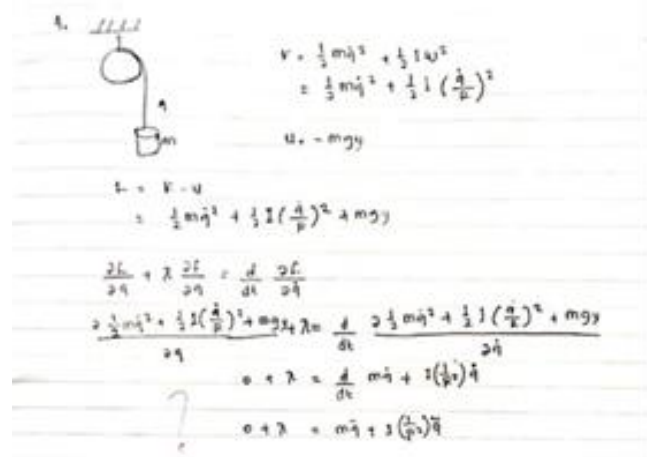 1.
K = ½ m q̇² + ½ I ω²
= ½ m q̇² + ½ I (q̇/R)²
q
m
U = - mgy
L = K - U
= ½ m q̇² + ½ I (q̇/R)² + mgy
∂L/∂q + λ ∂f/∂q = d/dt ∂L/∂q̇
∂ ½ m q̇² + ½ I (q̇/R)² + mgy / ∂q + λ = d/dt ∂ ½ m q̇² + ½ I (q̇/R)² + mgy / ∂q̇
0 + λ = d/dt m q̇ + I (1/R²) q̇
? 0 + λ = m q̈ + I (1/R²) q̈